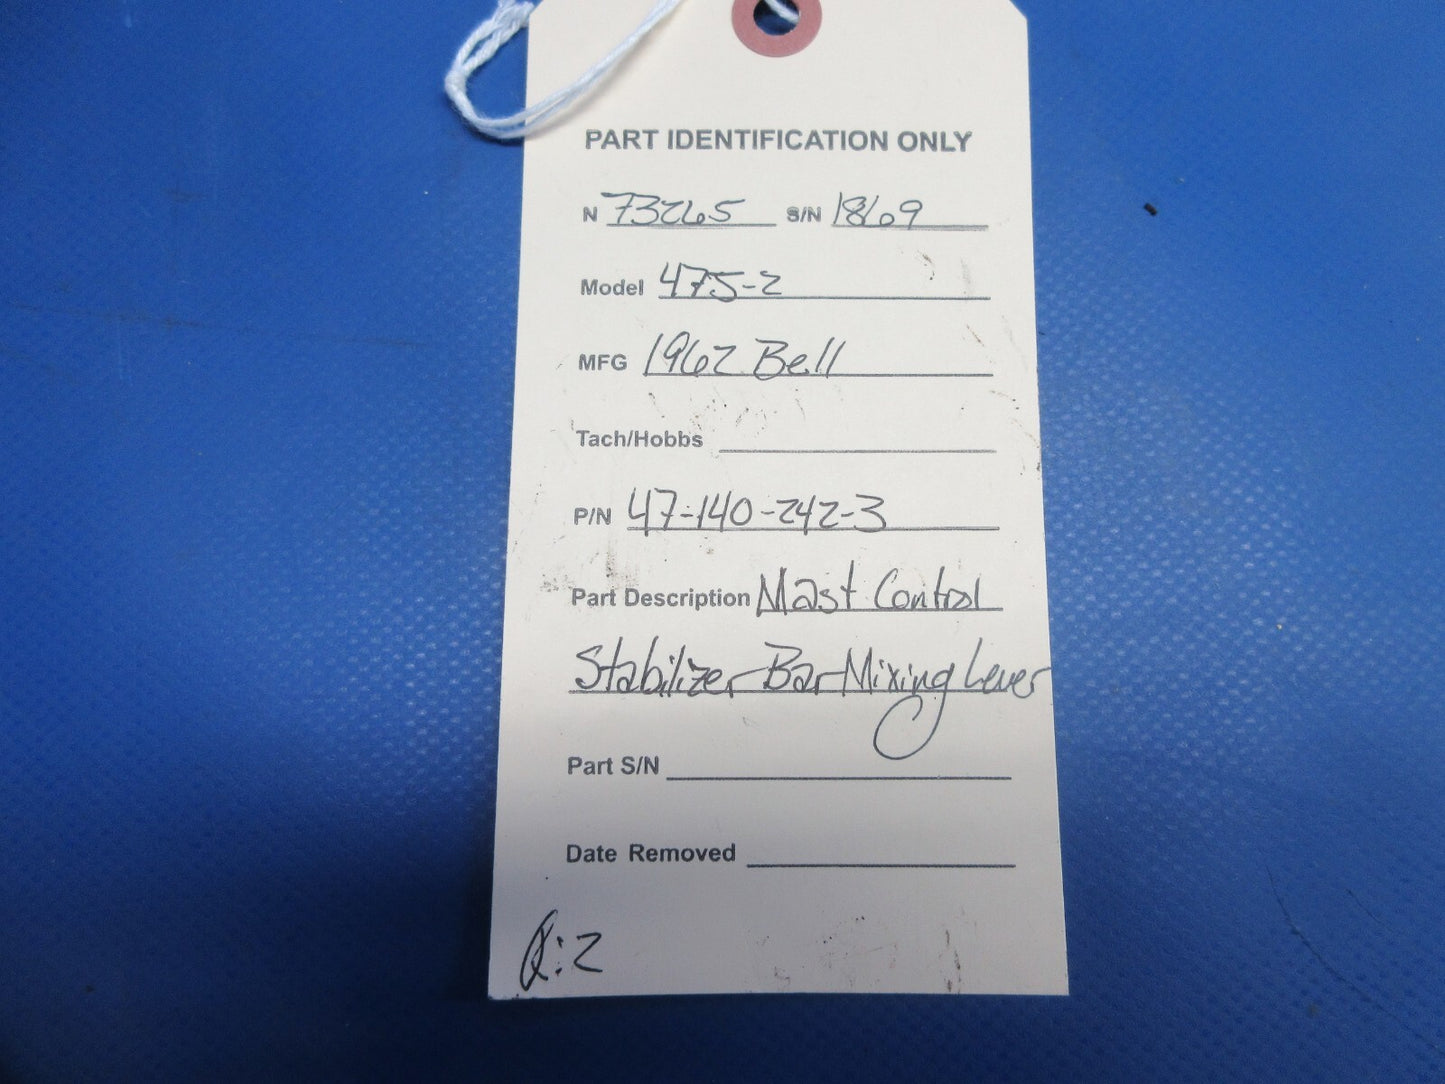 PART IDENTIFICATION ONLY
N 73265 S/N 1869
Model 47J-2
MFG 1962 Bell
Tach/Hobbs
P/N 47-140-242-3
Part Description Mast Control
Stabilizer Bar Mixing Lever
Part S/N
Date Removed
Q:2